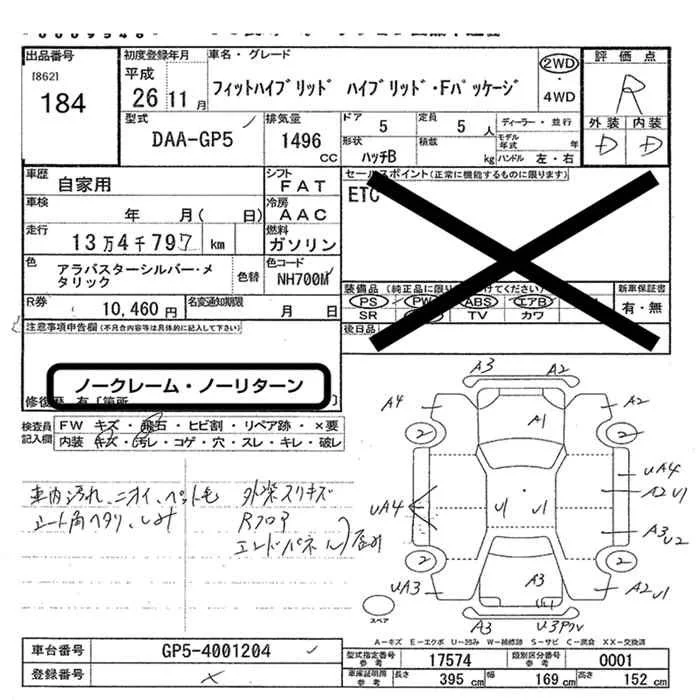 出品番号 初度登録年月 車名・グレード 評価点
[862] 平成 フィットハイブリッド ハイブリッド・Fパッケージ 2WD R
184 26 年 11 月 4WD
型式 排気量 ドア 5 定員 5 人 ディーラー・並行 外装 内装
DAA-GP5 1496 cc 形状 ハッチB 積載 kg モデル年式 年 D D
ハンドル 左・右
車歴 自家用 シフト FAT セールスポイント(正常に機能するものに限ります)
車検 年 月( 日) 冷房 AAC ETC
走行 13万4千797 km 燃料 ガソリン
色 アラバスターシルバー・メタリック 色替 色コード NH700M 装備品 新車保証書
PS PW ABS エアB 有・無
R券 10,460円 名変通知期限 月 日 SR TV カワ
注意事項申告欄(不具合内容等は具体的に記入して下さい) 後日品
ノークレーム・ノーリターン
修復歴 有 [箇所 ]
検査員記入欄 FW キズ・飛石・ヒビ割・リペア跡・×要
内装 キズ・汚レ・コゲ・穴・スレ・キレ・破レ
車内汚れ、ニオイ、ペット毛 外装スリキズ
シート角ヘタリ、しみ Rフロア
エンドパネル
A3 A2
A4 A1 A2
2 2
UA4
UA4 U1 U1 A2 U1
A3 U2
2 2
UA3 A3 A2 U1
U1
A3 U3
スペア
A-キズ E-エクボ U-凹み W-補修跡 S-サビ C-腐食 XX-交換済
車台番号 GP5-4001204 型式指定番号 参考 17574 類別区分番号 参考 0001
登録番号 × 車庫証明用 参考 長さ 395 cm 幅 169 cm 高さ 152 cm